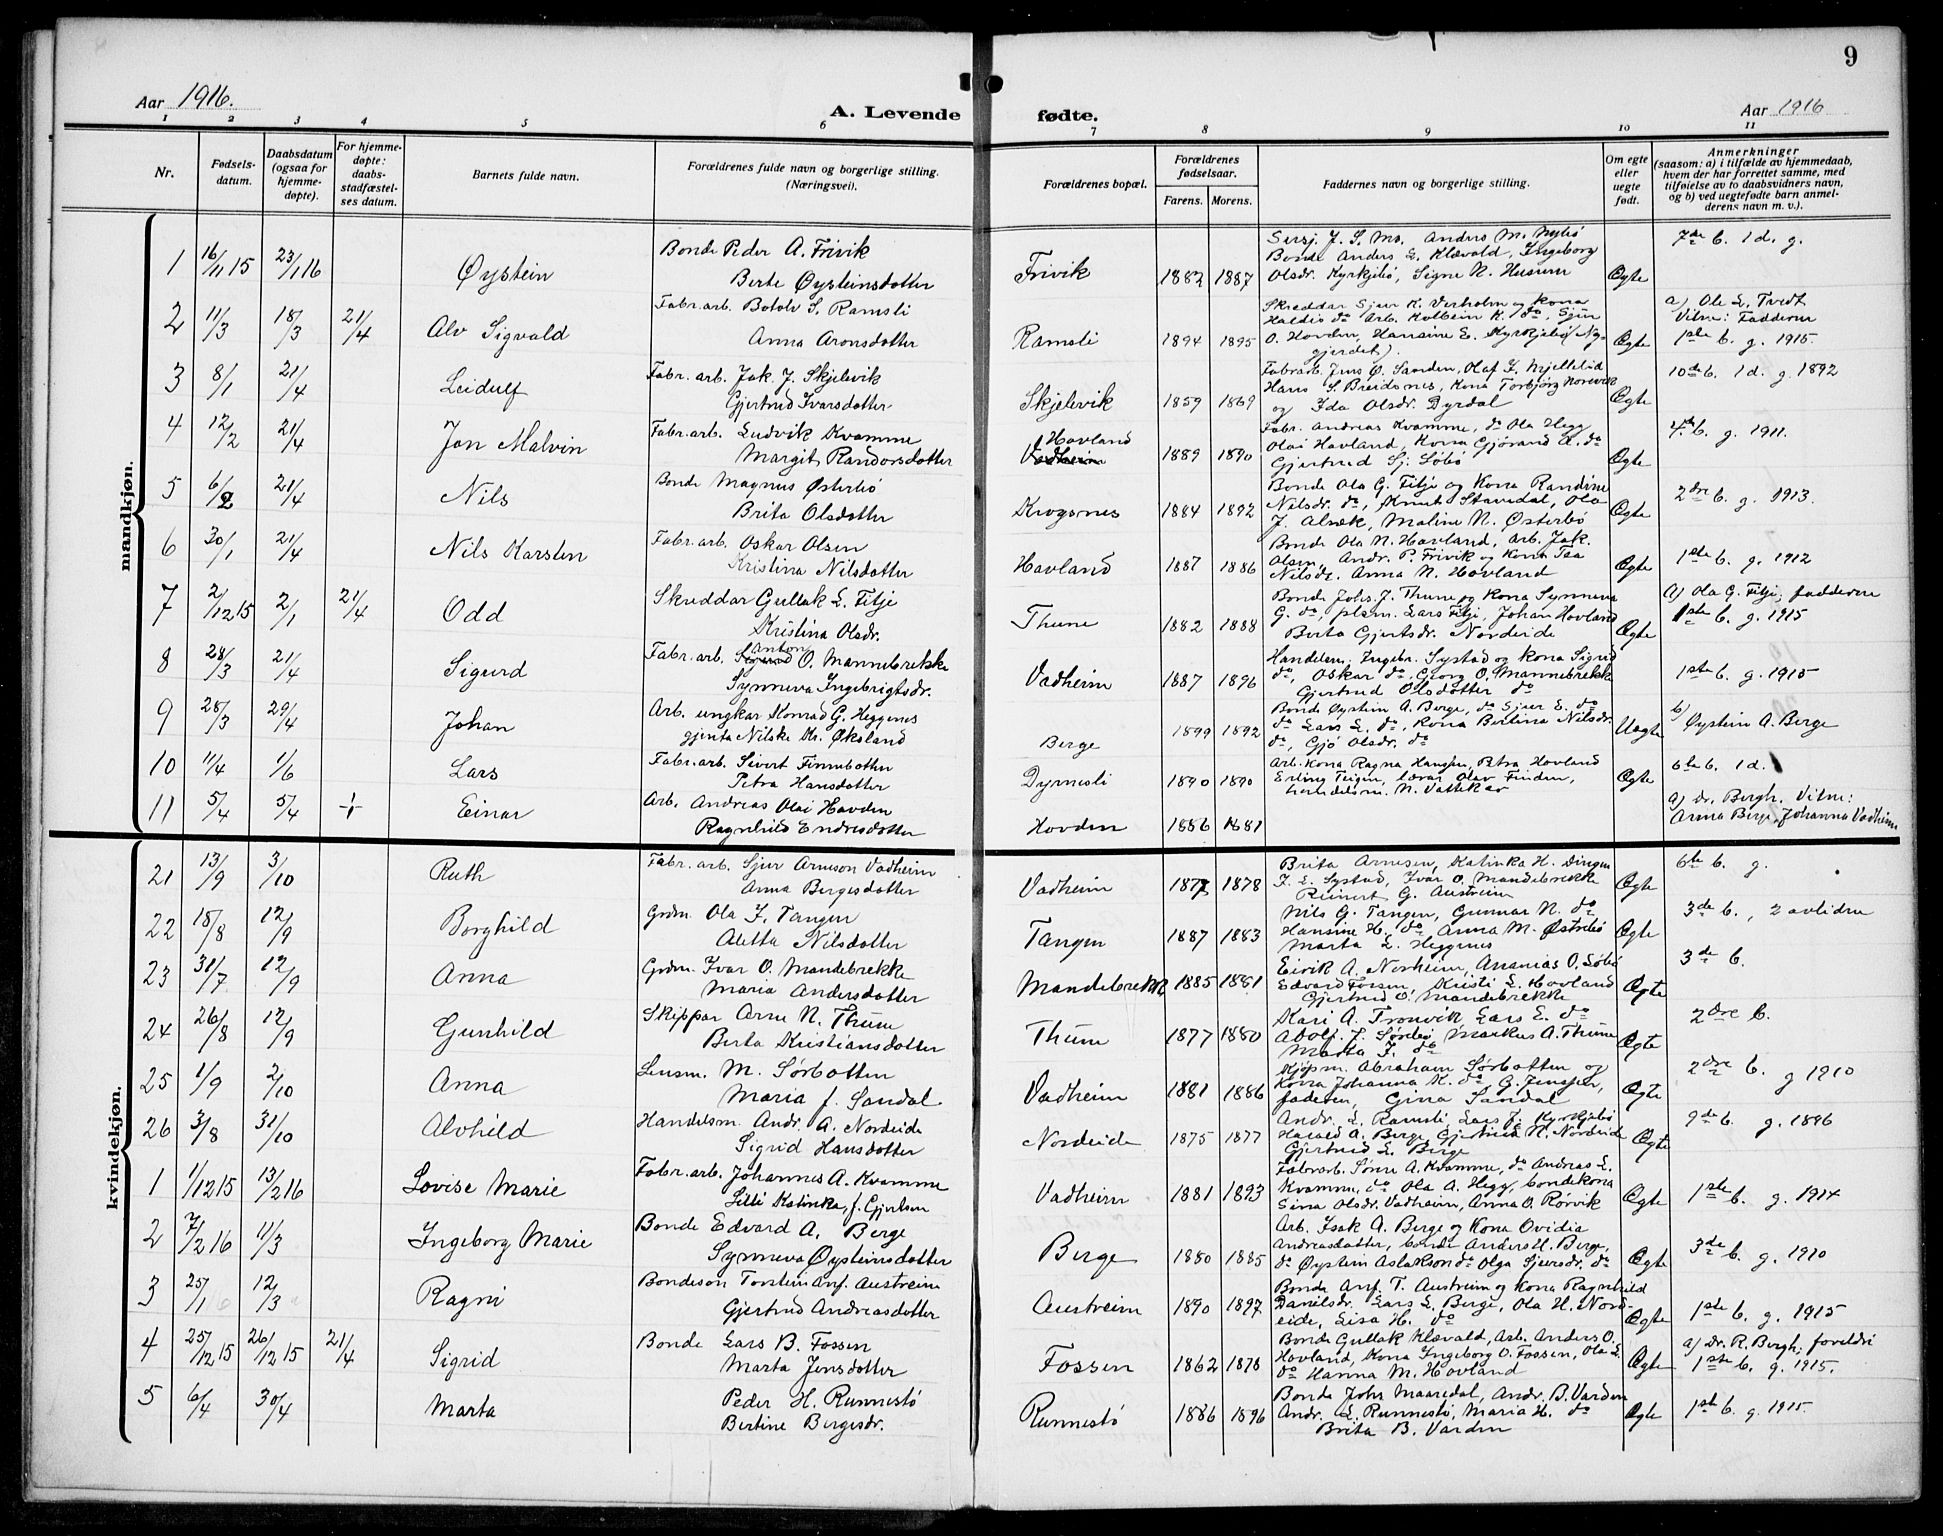 9
Aar 1916.
A. Levende fødte.
Aar 1916
1 2 3 4 5 6 7 8 9 10 11
Nr.
Fødsels-
datum.
Daabsdatum
(ogsaa for
hjemme-
døpte).
For hjemme-
døpte:
daabs-
stadfæstel-
ses datum.
Barnets fulde navn.
Forældrenes fulde navn og borgerlige stilling.
(Næringsvei).
Forældrenes bopæl.
Forældrenes
fødselsaar.
Farens. Morens.
Faddernes navn og borgerlige stilling.
Om egte
eller
uegte
født.
Anmerkninger
(saasom: a) i tilfælde av hjemmedaab,
hvem der har forrettet samme, med
tilføielse av to daabsvidners navn,
og b) ved uegtefødte barn anmel-
derens navn m. v.).
mandkjøn.
1 16/11 15 23/1 16 Øystein
Bonde Peder A. Frivik
Berte Øysteinsdotter
Frivik 1882 1887
Sersj. J. S. Mo. Anders M. Nybø
Bonde Anders L. Klævold, Ingeborg
Olsdr. Kyrkjebø, Signe N. Husum
Ægte
7de b. 1 d. g.
2 11/3 18/3 21/4 Alv Sigvald
Fabr. arb. Botolv S. Ramsli
Anna Aronsdotter
Ramsli 1894 1895
Skreddar Sjur K. Verholm og kona
Haldis do Arb. Kolbein K. do, Sjur
O. Hovden, Hansine E. Kyrkjebø (Ny-
gjerdet).
Ægte
a) Ole L. Tvedt
Vitne: Fadderne
1ste b. g. 1915.
3 8/1 21/4 Leidulf
Fabr. arb. Jak. J. Skjelevik
Gjertrud Ivarsdotter
Skjelevik 1859 1869
Fabrarb. Jens O. Sanden, Olaf I. Mjellelid
Hans S. Breidsnes, kona Torbjørg Norevik
og Ida Olsdr. Dyrdal
Ægte
10de b. 1 d. g. 1892
4 12/2 21/4 Jon Malvin
Fabr. arb. Ludvik Kvamme
Margit Randorsdotter
Hovland
Vadheim 1889 1890
Fabr. Andreas Kvamme, do Ola Hegg
Olai Hovland, kona Gjørand A. do
Gjertrud Sj.Løbø
Ægte
4de b. g. 1911.
5 6/2 21/4 Nils
Bonde Magnus Østerbø
Brita Olsdotter
Krogsnes 1884 1892
Bonde Ola G. Fitje og Kona Randine
Nilsdr. do, Knut Stavedal, Ola
J. Alsæk, Maline N. Østerbø
Ægte
2dre b. g. 1913.
6 30/1 21/4 Nils Karsten
Fabr. arb. Oskar Olsen
Kristina Nilsdotter
Hovland 1887 1886
Bonde Ola N. Hovland, arb. Jak.
Olsen Andr. P. Frivik og kona Tea
Nilsdr. Anna N. Hovland
Ægte
1ste b. g. 1912
7 2/12 15 2/1 21/4 Odd
Skreddar Gullak L. Fitje
Kristina Olsdr.
Thune 1882 1888
Bonde Johs. J. Thune og kona Synneva
G. do, plsm. Lars Fitje, Johan Hovland
Berta Gjertsdr. Nordeide
Ægte
a) Ola G. Fitje, fadderne
1ste b. g. 1915
8 28/3 21/4 Sigurd
Fabr. arb. Anton O. Mannebrekke
Synneva Ingebrigtsdr.
Vadheim 1887 1896
Handelsm. Ingebr. Systad og kona Sigrid
do, Oskar do, Georg O. Mannebrekk
Gjertrud Olsdotter do
Ægte
1ste b. g. 1915
9 28/3 29/4 Johan
Arb. ungkar Konrad G. Heggenes
gjenta Nilske Kr. Øksland
Berge 1899 1892
Bonde Øystein A. Berge, do Sjur E. do
do Lars L. do, kona Bertina Nilsdr.
do, Gjø Olsdr. do
Uegte
b) Øystein A. Berge
10 11/4 1/6 Lars
Fabr. arb. Sivert Finnebotten
Petra Hansdotter
Dyrnesli 1890 1890
Arb. kona Ragna Hansen, Petra Hovland
Erling Teigen, lærar Olav Finden,
handelsm. N. Vattekar
Ægte
6te b. 1 d.
11 5/4 5/4 + Einar
Arb. Andreas Olai Hovden
Ragnhild Endresdotter
Hovden 1886 1881
a) Dr. Bergh. Vitne:
Anna Berge, Johanna Vadheim
kvindekjøn.
21 13/9 3/10 Ruth
Fabr. arb. Sjur Arneson Vadheim
Anna Bergesdotter
Vadheim 1877 1878
Brita Arnesen, Katinka H. Dingen
I. L. Systad, Ivar O. Mandebrekke
Reinert G. Austreim
Ægte
6te b. g.
22 18/8 12/9 Borghild
Grdm. Ola I. Tangen
Aletta Nilsdotter
Tangen 1887 1883
Nils G. Tangen, Gunnar N. do
Hansine H. do Anna M. Østrebø
Marta L. Heggenes
Ægte
3de b., 2 avlidne
23 31/7 12/9 Anna
Grdm. Ivar O. Mandebrekke
Maria Andersdotter
Mandebrekk 1885 1881
Eirik A. Norheim, Ananias O. Løbø
Edvard Fossen, Kristi L. Hovland
Gjertrud O. Mandebrekke
Ægte
3de b.
24 26/8 12/9 Gunhild
Skippar Arne N. Thune
Berta Kristiansdotter
Thune 1877 1880
Kari A. Tronvik Lars E. do
Adolf J. Sørebø Markus A. Thune
Marta I. do
Ægte
2dre b.
25 1/9 2/10 Anna
Lensm. M. Sørbotten
Maria f. Sandal
Vadheim 1881 1886
Kjøpm. Abraham Sørbotten og
Kona Johanna K. do G. Jensen,
faderen, Gina Sandal
Ægte
2dre b. g 1910
26 3/8 31/10 Alvhild
Handelsm. Andr. A. Nordeide
Sigrid Hansdotter
Nordeide 1875 1877
Andr. L. Ramsli, Lars J. Kyrkjebø
Harald A. Berge, Gjertrud N. Nordeide
Gjertrud L. Berge
Ægte
9de b. g. 1896
1 1/12 15 13/2 16 Lovise Marie
Fabr. arb. Johannes A. Kvamme
Lilli Katinka, f. Gjertsen
Vadheim 1881 1893
Fabrarb. Sønne A. Kvamme, do Andreas L.
Kvamme, do Ola A. Hegg, bondekona
Sina Olsdr. Vadheim, Anna O. Rørvik
Ægte
1ste b. g. 1914
2 7/2 16 11/3 Ingeborg Marie
Bonde Edvard A. Berge
Synneva Øysteinsdotter
Berge 1880 1885
Arb. Isak A. Berge og Kona Ovidia
Andreasdotter, bonde Anders H. Berge,
do Øystein Aslakson do Olga Sjursdr. do
Ægte
3de b. g. 1910
3 25/1 12/3 Ragni
Bondeson Torstein Anf. Austreim
Gjertrud Andreasdotter
Austreim 1890 1897
Bonde Anf. T. Austreim og Kona Ragnhild
Danilsdr. Lars L. Berge, Ola H. Nord-
eide, Lisa H. do
Ægte
1ste b. g. 1915
4 25/12 15 26/12 15 21/4 Sigrid
Bonde Lars B. Fossen
Marta Jensdotter
Fossen 1862 1878
Bonde Gullak Klævald, Arb. Anders O.
Hovland, Kona Ingeborg O. Fossen, Ola L.
do Hanna M. Hovland
Ægte
a) Dr. R. Bergh, foreldri
1ste b. g. 1915.
5 6/4 30/4 Marta
Peder H. Runnestø
Bertine Bergesdr.
Runnestø 1886 1896
Bonde Johs Maaredal, Andr. B. Varden
Andr. L. Runnestø, Maria H. do
Brita B. Varden
Ægte
1ste b. g. 1915.